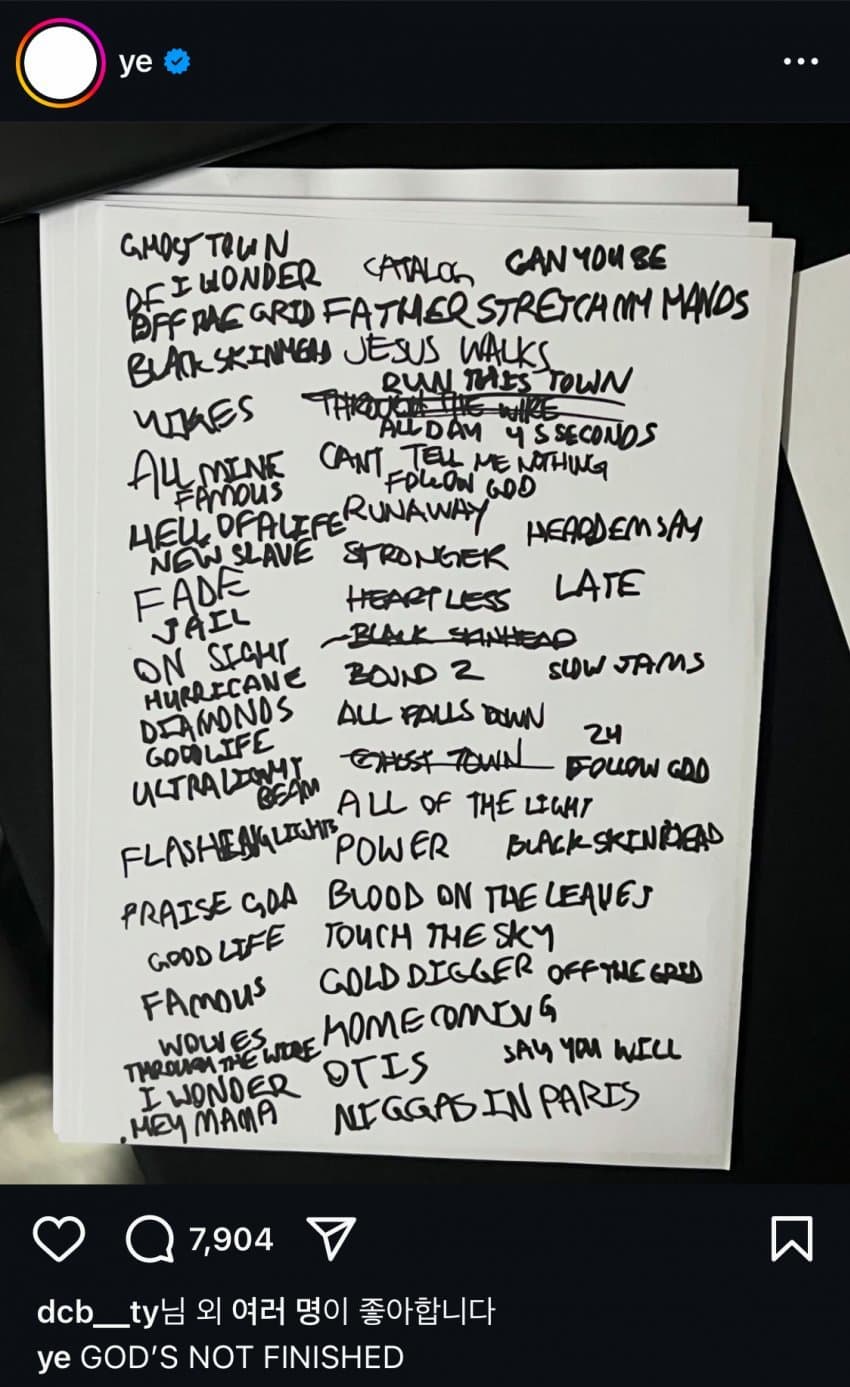 ye
GHOST TOWN
OF I WONDER CATALOG CAN YOU BE
OFF THE GRID FATHER STRETCH MY HANDS
BLACK SKINHEAD JESUS WALKS
RUN THIS TOWN
YIKES THROUGH THE WIRE
ALL DAY 4 5 SECONDS
ALL MINE CANT TELL ME NOTHING
FAMOUS FOLLOW GOD
HELL OF A LIFE RUNAWAY HEARD EM SAY
NEW SLAVE STRONGER
FADE HEARTLESS LATE
JAIL
ON SIGHT BLACK SKINHEAD
HURRICANE BOUND 2 SLOW JAMS
DIAMONDS ALL FALLS DOWN
GOOD LIFE GHOST TOWN 24
ULTRALIGHT FOLLOW GOD
BEAM ALL OF THE LIGHT
FLASHING LIGHTS POWER BLACK SKINHEAD
PRAISE GOD BLOOD ON THE LEAVES
GOOD LIFE TOUCH THE SKY
FAMOUS GOLD DIGGER OFF THE GRID
WOLVES HOMECOMING
THROUGH THE WIRE SAY YOU WILL
I WONDER OTIS
HEY MAMA NIGGAS IN PARIS
7,904
dcb__ty님 외 여러 명이 좋아합니다
ye GOD'S NOT FINISHED